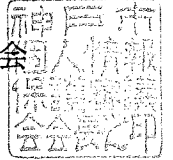 会
神戸市
個人情報
保護審議
会会長印